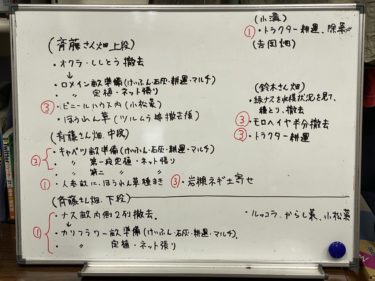 (斉藤さん畑 上段)
・オクラ・ししとう撤去
↓
・ロメイン畝準備(けいふん・石灰・耕運・マルチ)
〃 定植・ネット張り
③・ビニールハウス内(小松菜)
・ほうれん草(ツルムラ跡撤去後)
(斉藤さん畑 中段)
②・キャベツ畝準備(けいふん・石灰・耕運・マルチ)
〃 第一段定植・ネット張り
〃 第二 〃 〃
①・人参畝に、ほうれん草種まき
③・岩槻ネギ土寄せ
(斉藤さん畑 下段)
・ナス畝内側2列撤去
↓
①・カリフラワー畝準備(けいふん・石灰・耕運・マルチ)
〃 定植・ネット張り
(小溝)
①・トラクター耕運、除草
(吉岡畑)
(鈴木さん畑)
・緑ナスを収穫状況を見て、
種とり、撤去
③・モロヘイヤ半分撤去
③・トラクター耕運
・ルッコラ、からし菜、小松菜